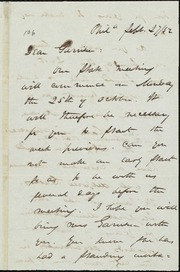 Phila Sept. 27/52
Dear Garrison
Our State Meeting
will commence on Monday
the 25th of October. It
will therefore be necessary
for you to start the
week previous. Can you
not make an early start
so as to be with us
several days before the
meeting. I hope you will
bring Mrs Garrison with
you. You know she has
had a standing invita-